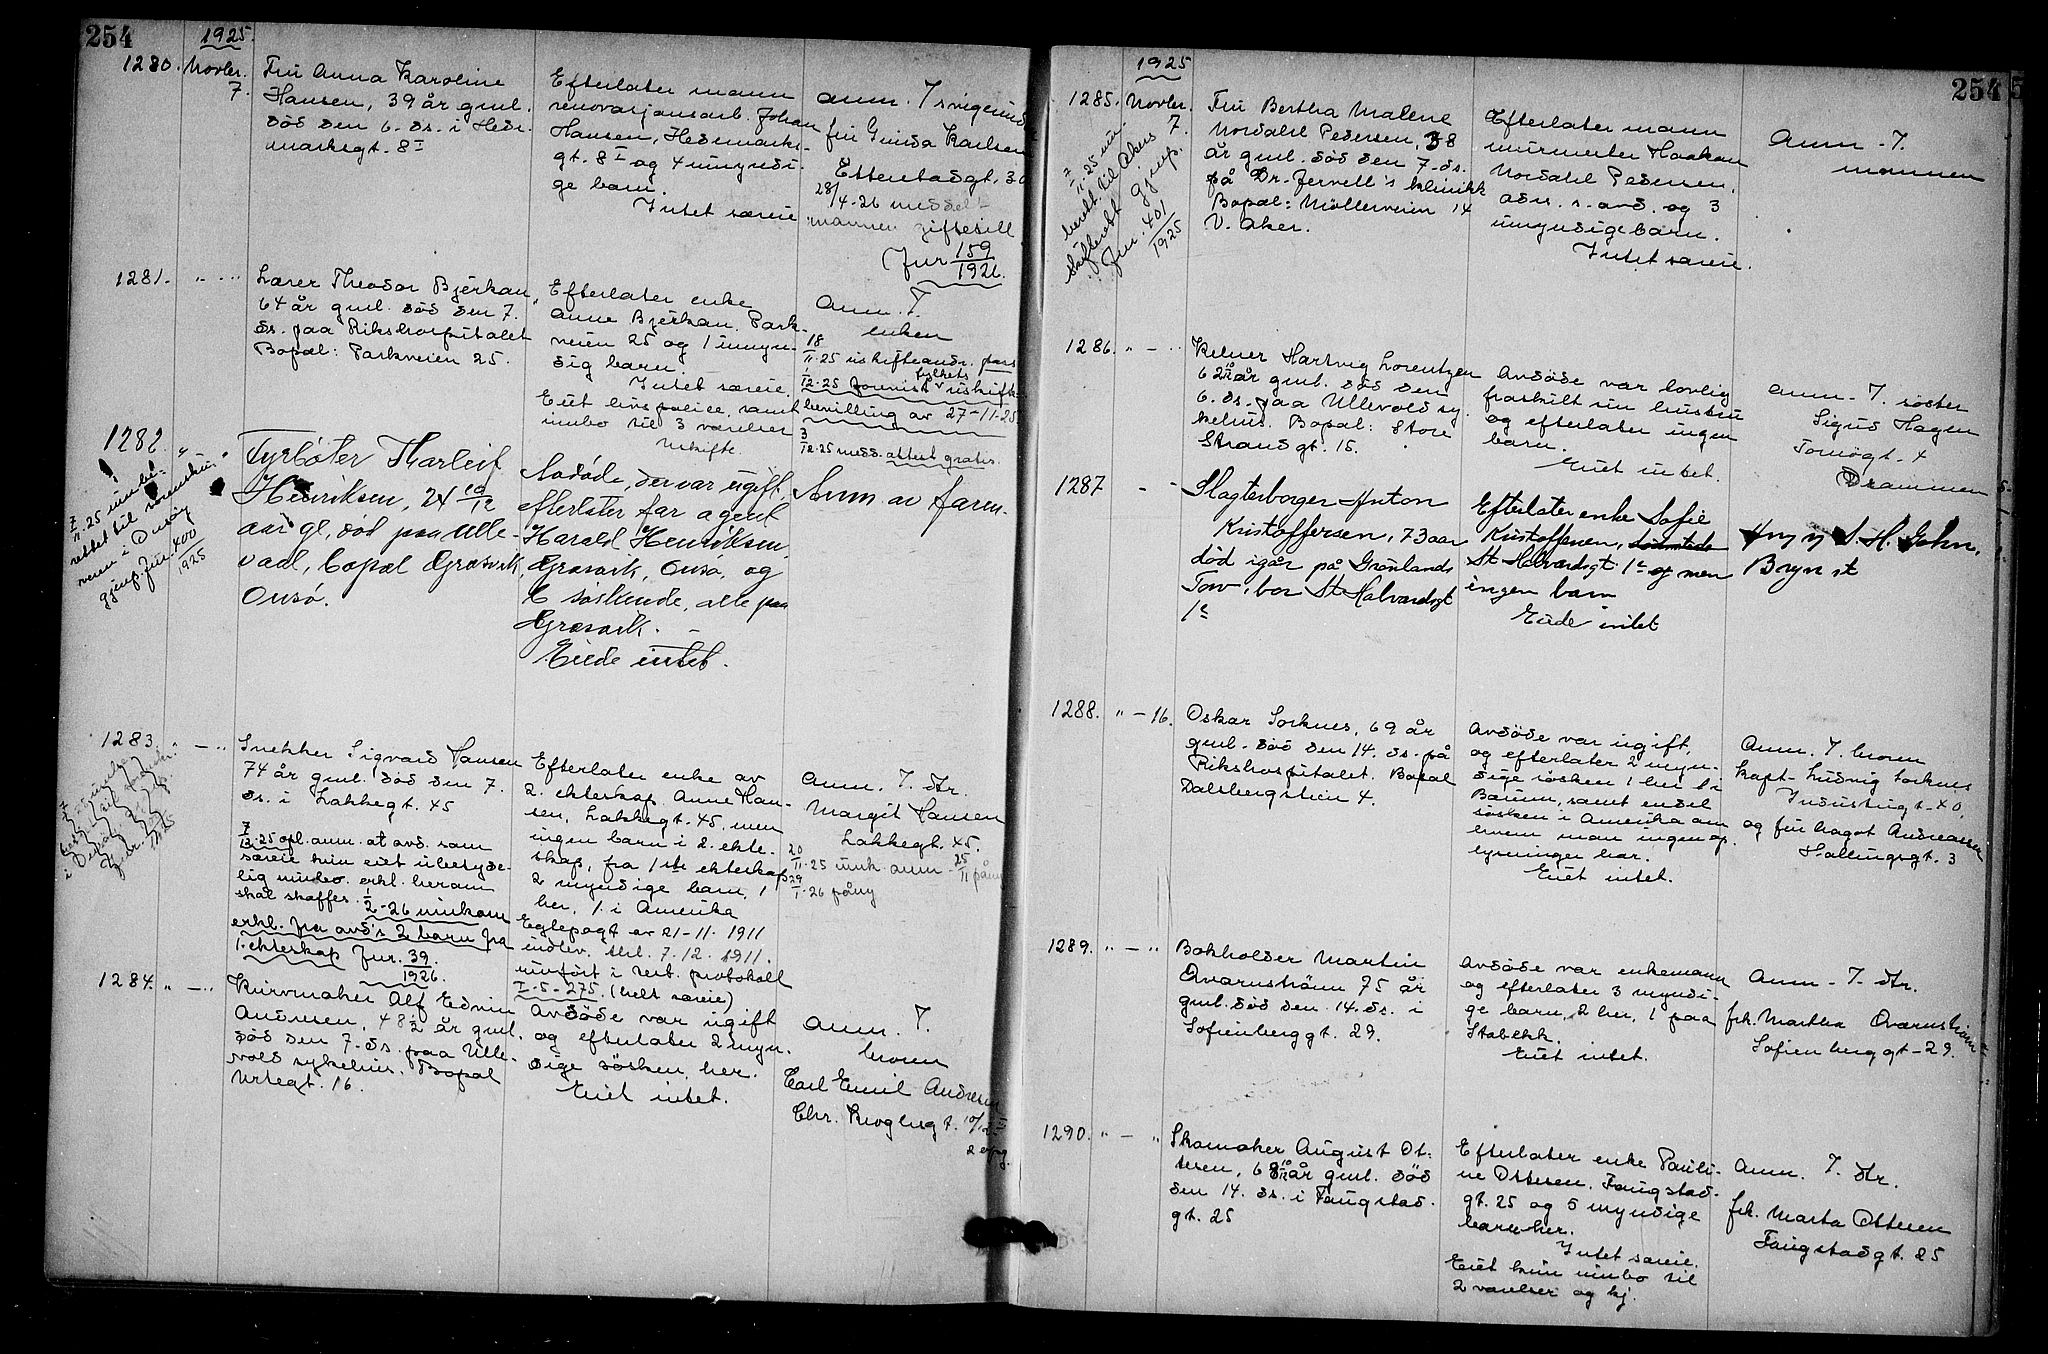 254
1925
1280. Novbr. 7.
Fru Anna Karoline
Hansen, 39 år gml.
död den 6. ds. i Hede-
markegt. 8 I
Efterlater mann
renovasjonsarb. Johan
Hansen, Hedemarks-
gt. 8 I og 4 umyndi-
ge barn.
Intet særeie
Anm. T.
fru Karlsen
28/4-26 meddelt
mannen giftetill.
Jur 159/1926.
1281. " - "
Lærer Theodor Bjerkan,
64 år gml. död den 7.
ds. paa Rikshospitalet
Bopæl: Parkveien 25.
Efterlater enke
Anne Bjerkan. Park-
veien 25 og 1 umyn-
dig barn.
Intet særeie.
Eiet livspolice, samt
innbo til 3 værelser
Uskifte.
Anm. T.
enken
18/11-25 uskifteandr. pass
1/12-25 forevist fylkets uskifte-
bevilling av 27-11-25
3/12-25 medd. attest gratis.
1282. " "
Fyrböter Tharleif
Henriksen, 24 10/12
aar gl, död paa Ulle-
vaal, bopæl Græsvik,
Onsö.
Avdöde, der var ugift,
efterlater far agent
Harald Henriksen,
Græsvik, Onsö, og
6 söskende, alle paa
Græsvik. -
Eiede intet.
Anm av faren.
7/11-25 innbe-
rettet til sorenskri-
veren i Onsöy
gjenp. Jur. 400/1925
1283. " - "
Snekker Sigvard Hansen
74 år gml. död den 7.
ds. i Lakkegt. 45
7/12-25 opl. anm. at avd. som
særeie kun eiet ubetyde-
lig innbo. erkl. herom
skal skaffes. 1/2-26 innkom
erkl. fra avd's 2 barn fra
1. ekteskap Jur. 39/1926.
Efterlater enke av
2. ekteskap. Anne Han-
sen, Lakkegt. 45, men
ingen barn i 2. ekte-
skap, fra 1ste ekteskap
2 myndige barn, 1
her, 1. i Amerika
Egtepagt av 21-11. 1911
indlev. thl. 7.12. 1911.
innfört i reit. protokoll
I-5-275. (helt særeie)
Anm. T. dtr.
Margit Hansen
Lakkegt. 45.
20/11-25 innk. anm - 25/11 påny
29/1-26 påny
1284. " - "
Kurvmaker Alf Edvin
Andresen, 48 1/2 år gml.
död den 7. ds. paa Ulle-
vold sykehus. Bopæl
Urtegt. 16.
Avdöde var ugift
og efterlater 2 myn-
dige sösken, her.
Eiet intet.
Anm. T.
broren
Carl Emil Andresen
Chr. Kroghsgt. 10/12 II
2 opg.
254
1925
1285. Novbr. 7.
Fru Bertha Malene
Nordahl Pedersen, 38
år gml. död den 7. ds.
på Dr. Jervell's klinikk
Bopæl: Möllerveien 14
V. Aker.
Efterlater mann
murmester Haakon
Nordahl Pedersen,
adr. s. avd. og 3
umyndige barn.
Intet særeie.
Anm. T.
mannen
7/11-25 inn-
berett. til Aker
skifterett gjenp.
Jur. 401/1925
1286. " - "
Kelner Hartvig Lorentzen
62 10/12 år gml. död den
6. ds. paa Ullevold sy-
kehus. Bopæl: Store
Strandgt. 15.
Avdöde var lovlig
fraskilt sin hustru
og efterlater ingen
barn.
Eiet intet.
Anm - T. söster
Sigrid Hagen
Tornögt. 4
Drammen
1287 - "
Slagterborger Anton
Kristoffersen, 73 aar
död igår på Grönlands
Torv, bor St Halvardsgt
1 c
Efterlater enke Sofie
Kristoffersen,
St Halvardsgt. 1 c og men
ingen barn
Eiede intet
S. H. Gohn,
Bryn st
1288. " - 16.
Oskar Sorknes, 69 år
gml. död den 14. ds. på
Rikshospitalet. Bopæl
Dalsbergstien 4.
Avdöde var ugift,
og efterlater 2 myn-
dige sösken 1 her 1 i
Bærum, samt endel
sösken i Amerika om
hvem man ingen op-
lysninger har.
Eiet intet.
Anm. T. broren
kapt. Ludvig Sorknes
Industrigt. 40,
og fru Dagot Andreassen
Hallingsgt. 3
1289. " - "
Bokholder Martin
Qvarnström 75 år
gml. död den 14. ds. i
Sofienberggt. 29.
Avdöde var enkemann
og efterlater 3 myndi-
ge barn, 2 her, 1 paa
Stabekk.
Eiet intet.
Anm - T. dtr.
frk. Martha Qvarnström
Sofienberggt - 29.
1290. " - "
Skomaker August Ot-
tesen, 68 10/12 år gml. död
den 14. ds. i Fougstad-
gt. 25
Efterlater enke Pauli-
ne Ottesen, Fougstad-
gt. 25 og 5 myndige
barn her.
Intet særeie.
Eiet kun innbo til
2 værelser og kj.
Anm. T. dtr.
frk. Marta Ottesen
Fougstadgt. 25